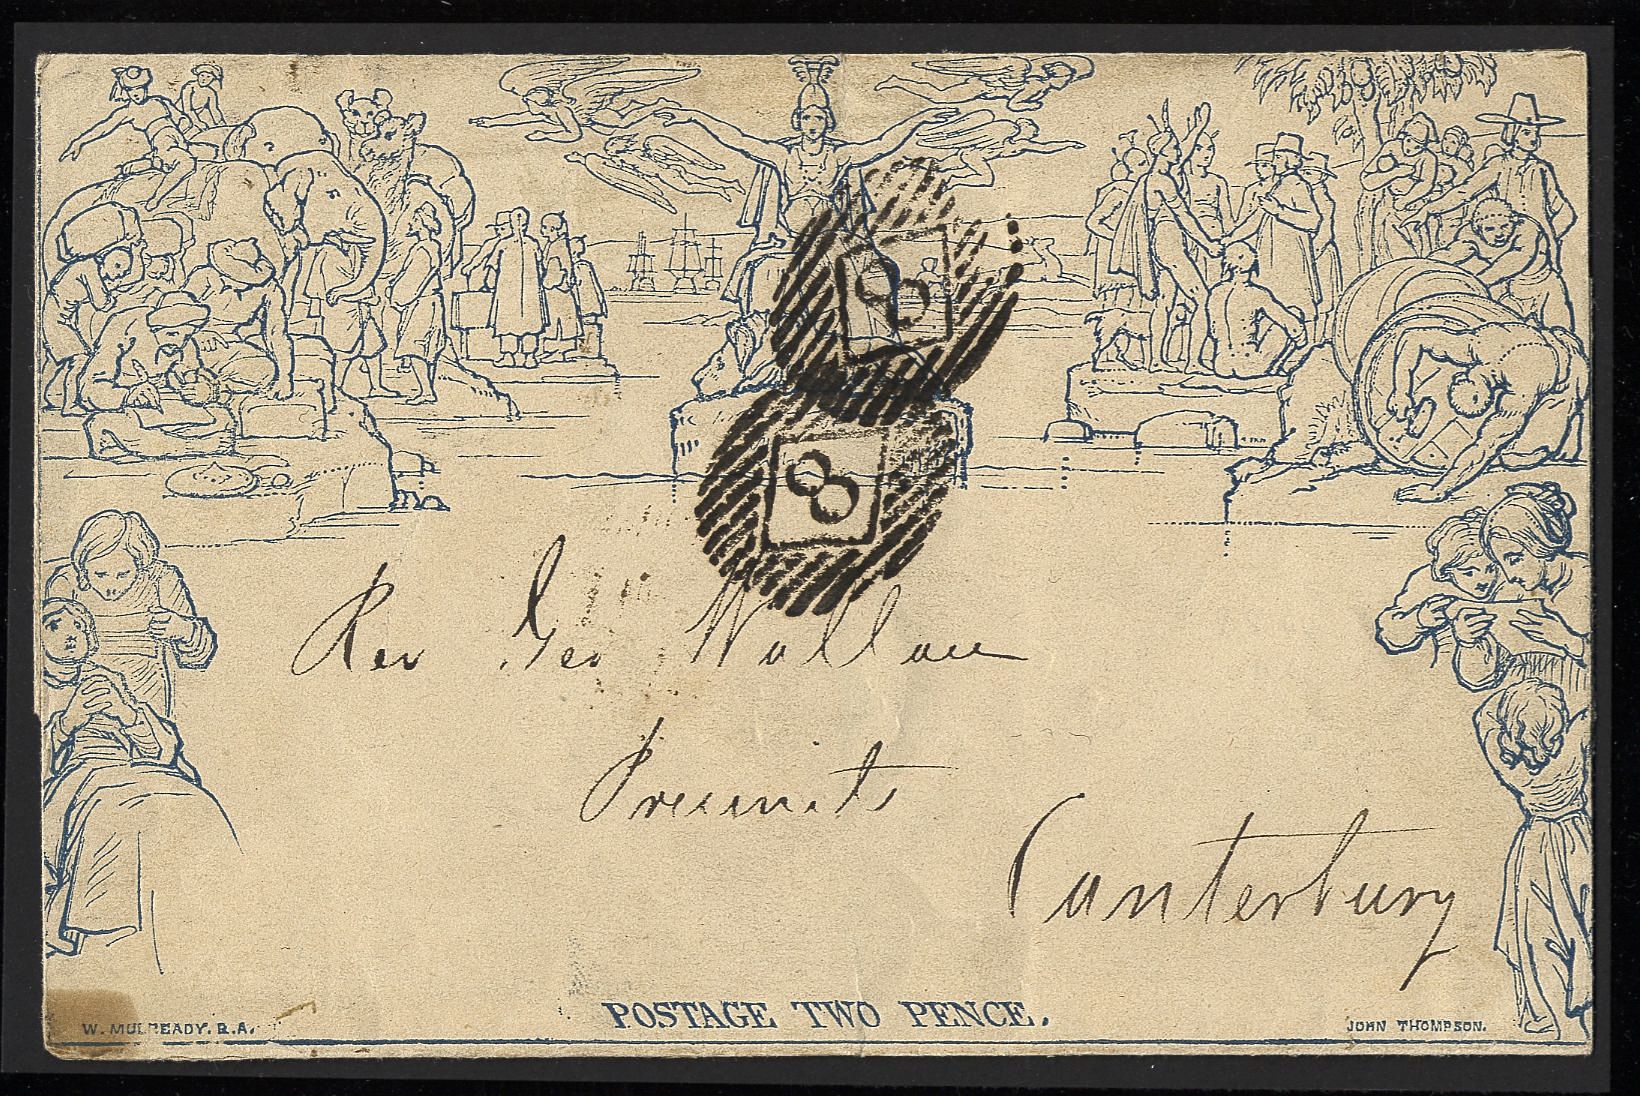 8
8
Rev Geo Wallace
Precincts
Canterbury
POSTAGE TWO PENCE.
W. MULREADY. R.A.
JOHN THOMPSON.